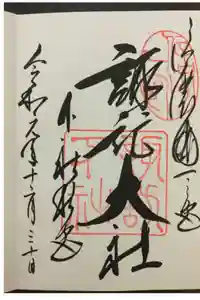 信濃國一之宮
諏訪大社
下社秋宮
令和元年十一月三十日